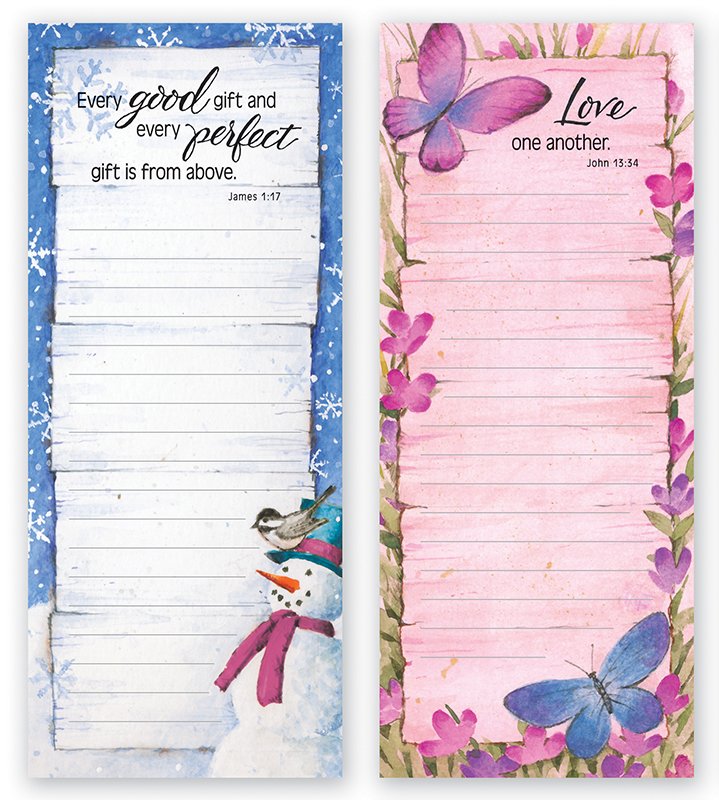 Every good gift and
every perfect
gift is from above.
James 1:17
Love
one another.
John 13:34